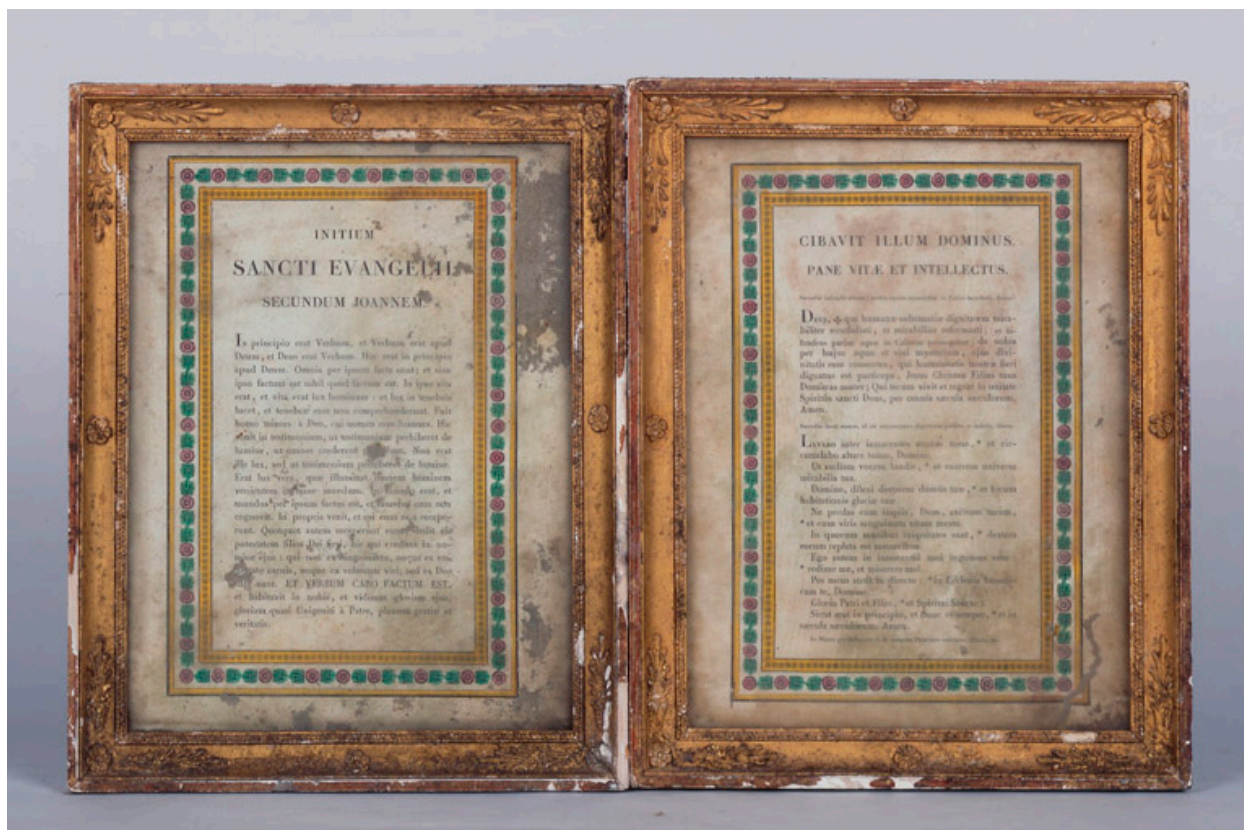 INITIUM
SANCTI EVANGELII
SECUNDUM JOANNEM.
In principio erat Verbum, et Verbum erat apud
Deum, et Deus erat Verbum. Hoc erat in principio
apud Deum. Omnia per ipsum facta sunt; et sine
ipso factum est nihil quod factum est. In ipso vita
erat, et vita erat lux hominum : et lux in tenebris
lucet, et tenebræ eam non comprehenderunt. Fuit
homo missus à Deo, cui nomen erat Joannes. Hic
venit in testimonium, ut testimonium perhiberet de
lumine, ut omnes crederent per illum. Non erat
ille lux, sed ut testimonium perhiberet de lumine.
Erat lux vera, quæ illuminat omnem hominem
venientem in hunc mundum. In mundo erat, et
mundus per ipsum factus est, et mundus eum non
cognovit. In propria venit, et sui eum non recepe-
runt. Quotquot autem receperunt eum, dedit eis
potestatem filios Dei fieri, his qui credunt in no-
mine ejus : qui non ex sanguinibus, neque ex vo-
luntate carnis, neque ex voluntate viri, sed ex Deo
nati sunt. ET VERBUM CARO FACTUM EST,
et habitavit in nobis, et vidimus gloriam ejus,
gloriam quasi Unigeniti à Patre, plenum gratiæ et
veritatis.
CIBAVIT ILLUM DOMINUS.
PANE VITÆ ET INTELLECTUS.
Deus, qui humanæ substantiæ dignitatem mira-
biliter condidisti, et mirabiliùs reformasti; da nobis
per hujus aquæ et vini mysterium, ejus divi-
nitatis esse consortes, qui humanitatis nostræ fieri
dignatus est particeps, Jesus Christus Filius tuus
Dominus noster; Qui tecum vivit et regnat in unitate
Spiritûs sancti Deus, per omnia sæcula sæculorum.
Amen.
Lavabo inter innocentes manus meas, * et cir-
cumdabo altare tuum, Domine.
Ut audiam vocem laudis, * et enarrem universa
mirabilia tua.
Domine, dilexi decorem domûs tuæ, * et locum
habitationis gloriæ tuæ.
Ne perdas cum impiis, Deus, animam meam,
* et cum viris sanguinum vitam meam.
In quorum manibus iniquitates sunt, * dextera
eorum repleta est muneribus.
Ego autem in innocentiâ meâ ingressus sum :
* redime me, et miserere mei.
Pes meus stetit in directo : * in Ecclesiis benedi-
cam te, Domine.
Gloria Patri et Filio, * et Spiritui Sancto :
Sicut erat in principio, et nunc et semper, * et in
sæcula sæculorum. Amen.